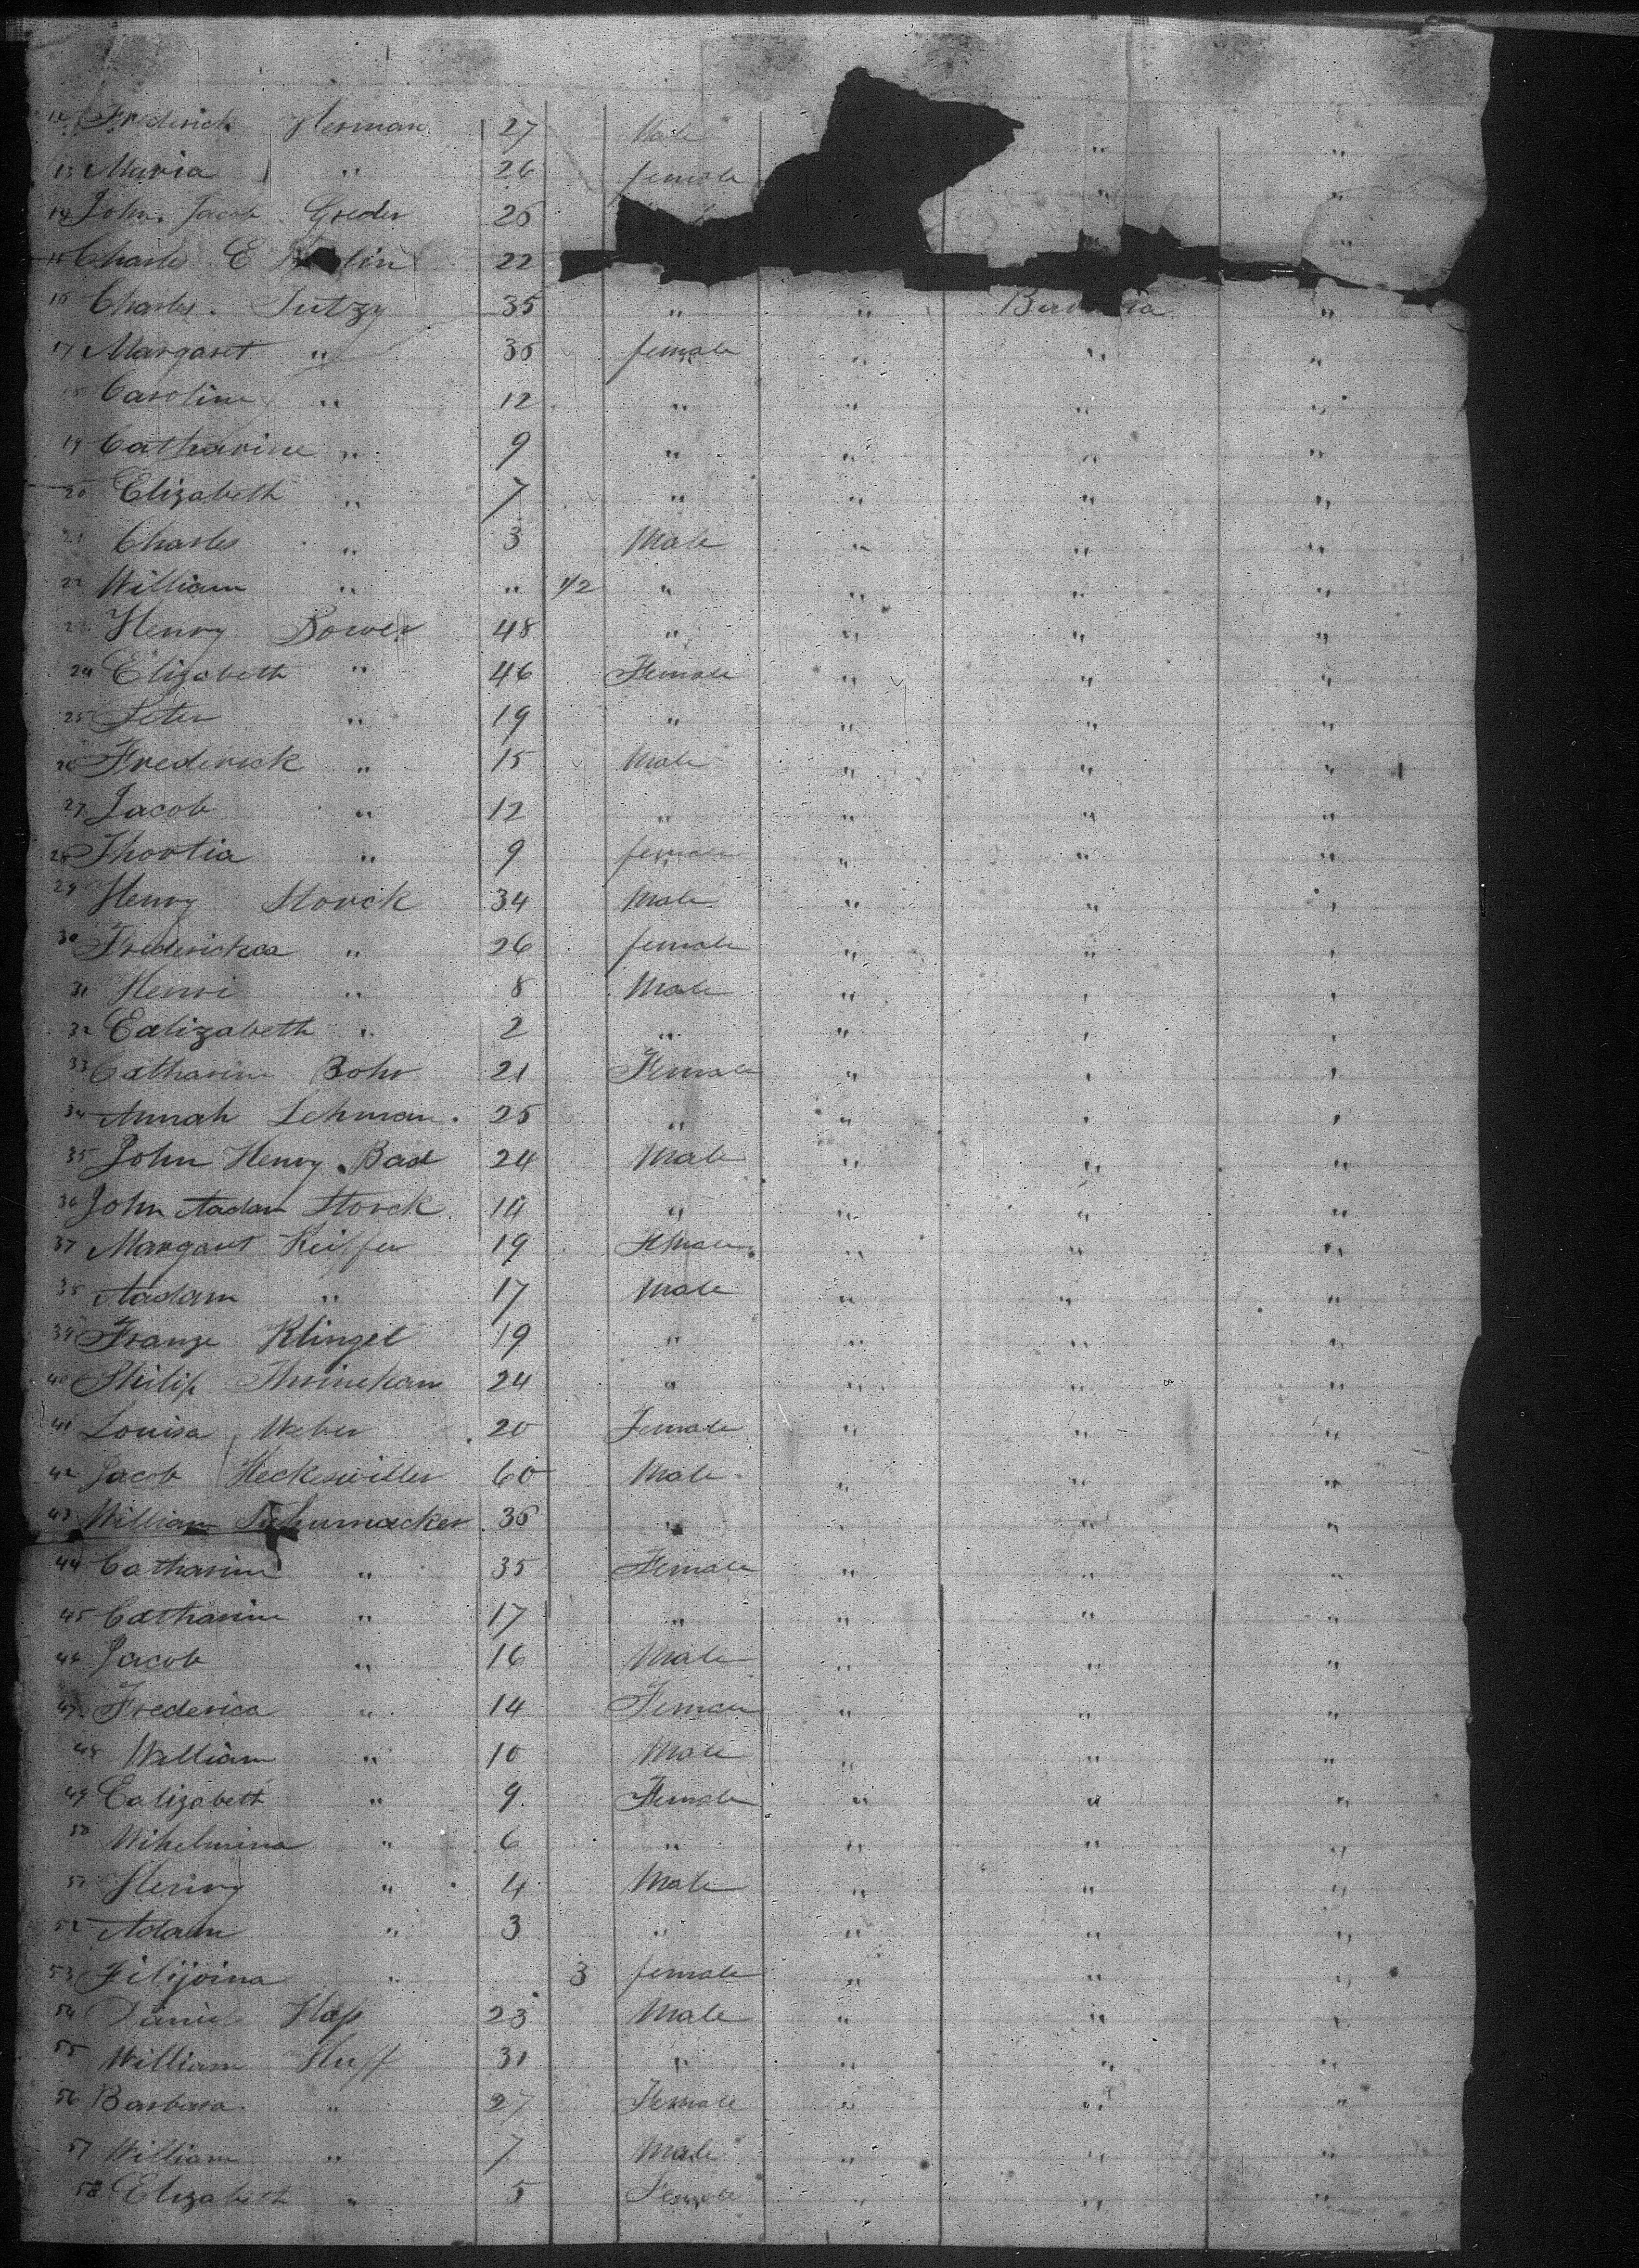 12 Frederick Herman 27 Male " "
13 Maria " 26 female " "
14 John Jacob Greder 25 "
15 Charles E 22
16 Charles Lutzy 35 " " Bavaria "
17 Margaret " 35 female " " "
18 Caroline " 12 " " " "
19 Catharine " 9 " " " "
20 Elizabeth " 7 " " " "
21 Charles " 3 Male " " "
22 William " " 1/2 " " " "
23 Henry Bower 48 " " " "
24 Elizabeth " 46 Female " " "
25 Peter " 19 " " " "
26 Frederick " 15 Male " " "
27 Jacob " 12 " " " "
28 Thortia " 9 female " " "
29 Henry Storck 34 Male " " "
30 Frederickca " 26 female " " "
31 Henri " 8 Male " " "
32 Ealizabeth " 2 " " " "
33 Catharine Bohr 21 Female " " "
34 Annah Lehman 25 " " " "
35 John Henry Bad 24 Male " " "
36 John Aadam Storck 14 " " " "
37 Margaret Keiffer 19 Female " " "
38 Aadam " 17 Male " " "
39 Franze Klingel 19 " " " "
40 Philip 24 " " " "
41 Louisa Weber 20 Female " " "
42 Jacob Heckeswiller 60 Male " " "
43 William Schumacker 36 " " " "
44 Catharine " 35 Female " " "
45 Catharine " 17 " " " "
46 Jacob " 16 Male " " "
47 Frederica " 14 Female " " "
48 William " 10 Male " " "
49 Ealizabeth " 9 Female " " "
50 Wihelmina " 6 " " " "
51 Henry " 4 Male " " "
52 Adam " 3 " " " "
53 Filijoina " 3 female " " "
54 Daniel Hass 23 Male " " "
55 William Huff 31 " " " "
56 Barbara " 27 Female " " "
57 William " 7 Male " " "
58 Elizabeth " 5 Female " " "